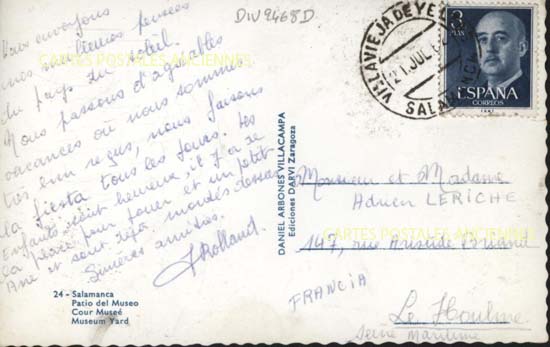 DIV9468D
Vous envoyons
nos meilleures pensées
du pays du soleil.
Nous passons d'agréables
vacances où nous sommes
très bien reçus, nous faisons
la fiesta tous les jours. Les
enfants sont heureux, il y a
la place pour jouer et un petit
Ane et sont déjà montés dessus
Sincères amitiés.
J Rolland
CARTES POSTALES ANCIENNES
24 - Salamanca
Patio del Museo
Cour Museé
Museum Yard
DANIEL ARBONES VILLACAMPA
Ediciones DARVI Zaragoza
VILLAVIEJA DE YELTES
21 JUL 6
SALAMANCA
3
PTAS
ESPAÑA
CORREOS
Monsieur et Madame
Adrien LERICHE
147, rue Aristide Briand
CARTES POSTALES ANCIENNES
FRANCIA
Le Houlme
Seine Maritime